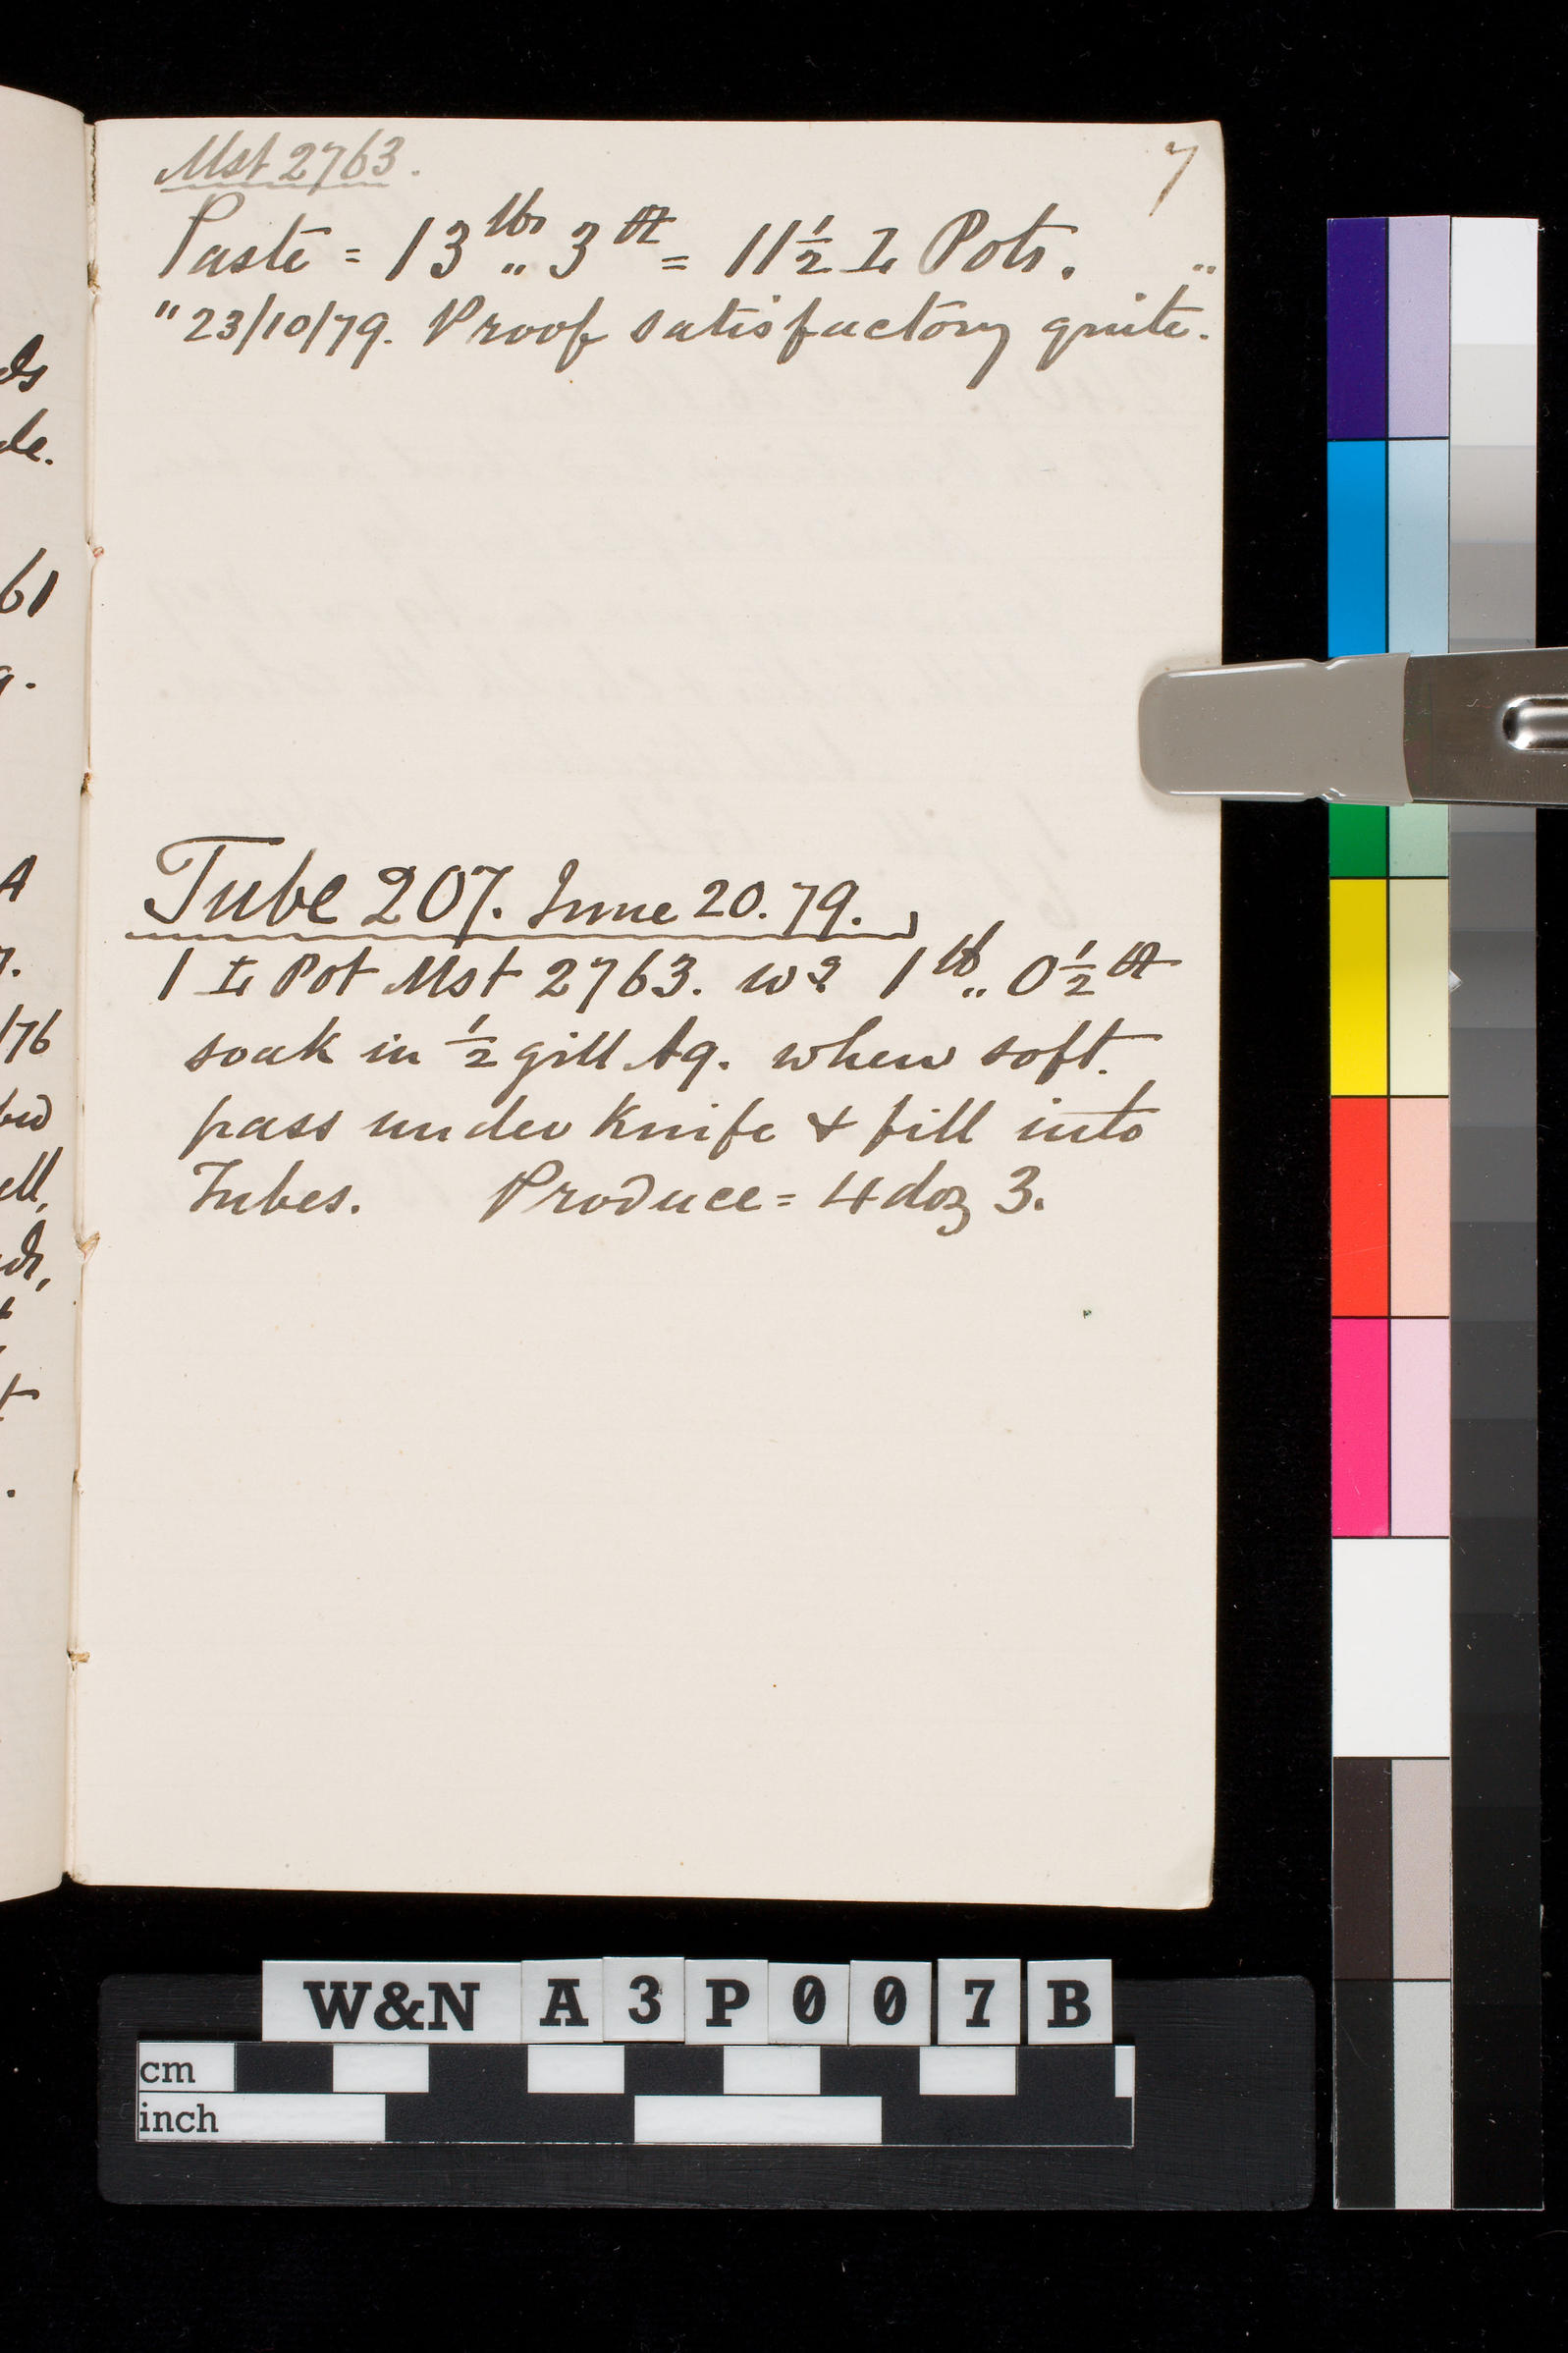 Mst 2763.
7
Paste = 13 lbs „ 3 = 11½ Pots. „
" 23/10/79. Proof satisfactory quite.
Tube 207. June 20. 79.
1 Pot Mst 2763. 1 lb „ 0½
soak in ½ gill Aq. when soft.
pass under Knife & fill into
Tubes. Produce = 4 doz 3.
ds
de.
61
9.
A
7.
/76
ell,
W&N A3P007B
cm
inch